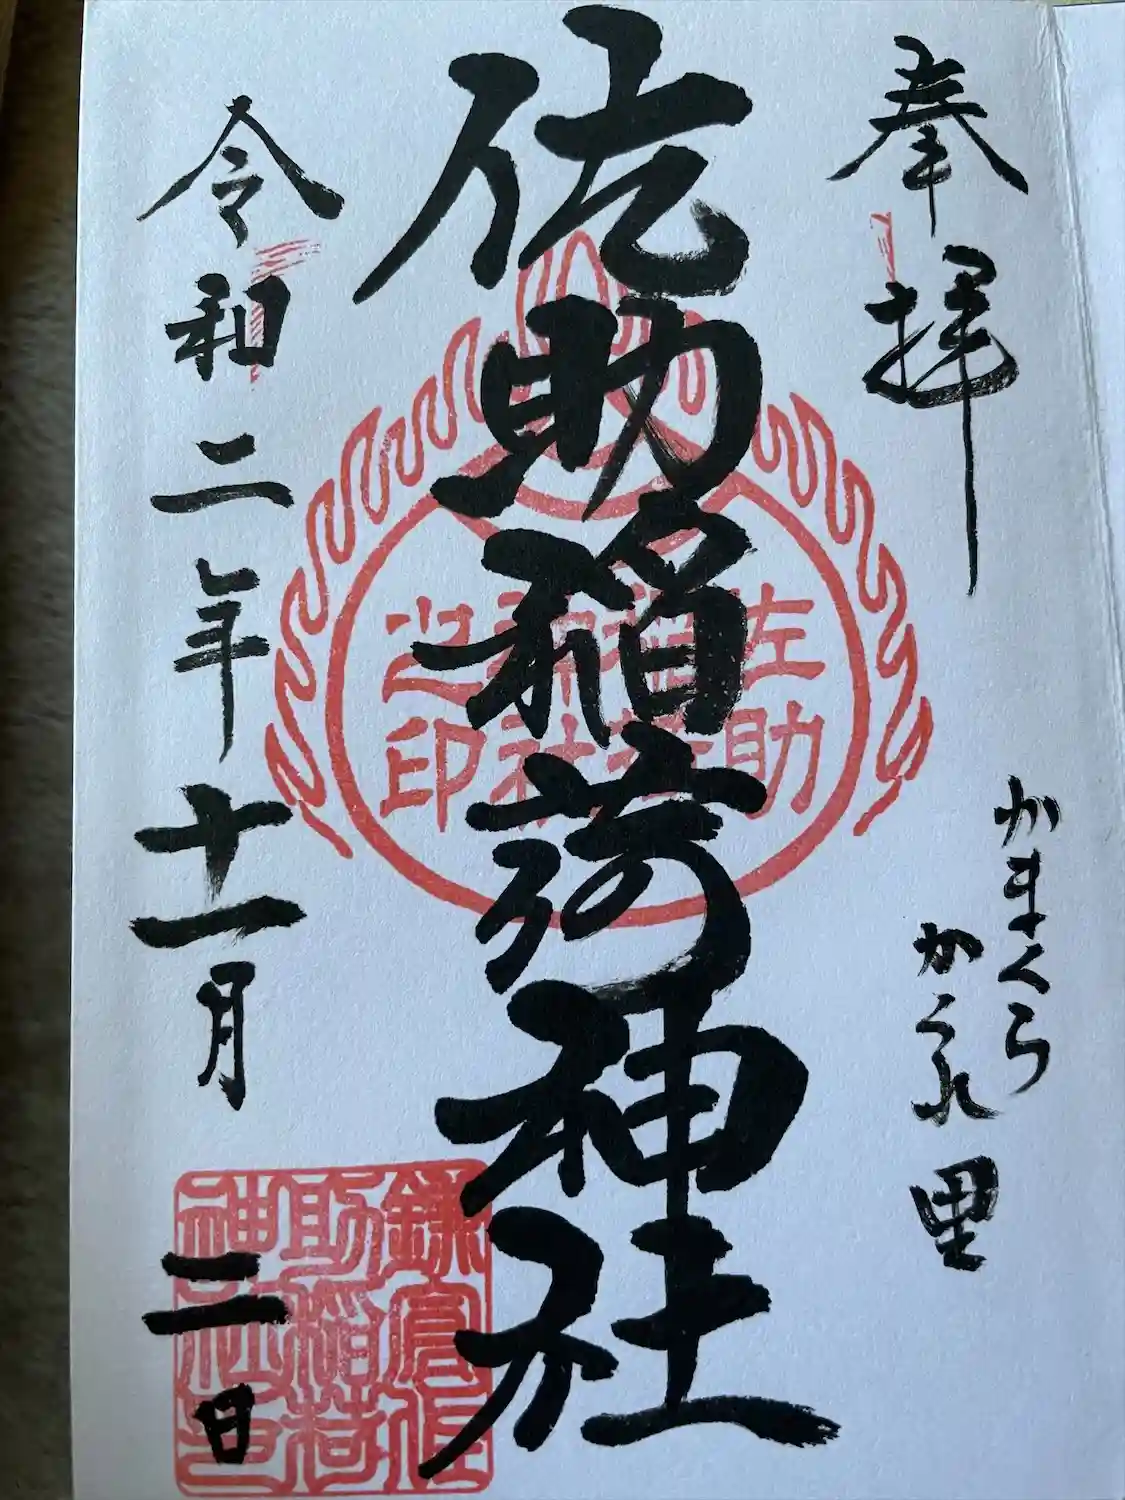 奉拝
かまくら
かくれ里
佐助稲荷神社
令和二年十一月二日
佐助
稲荷
神社
之印
鎌倉佐
助稲荷
神社